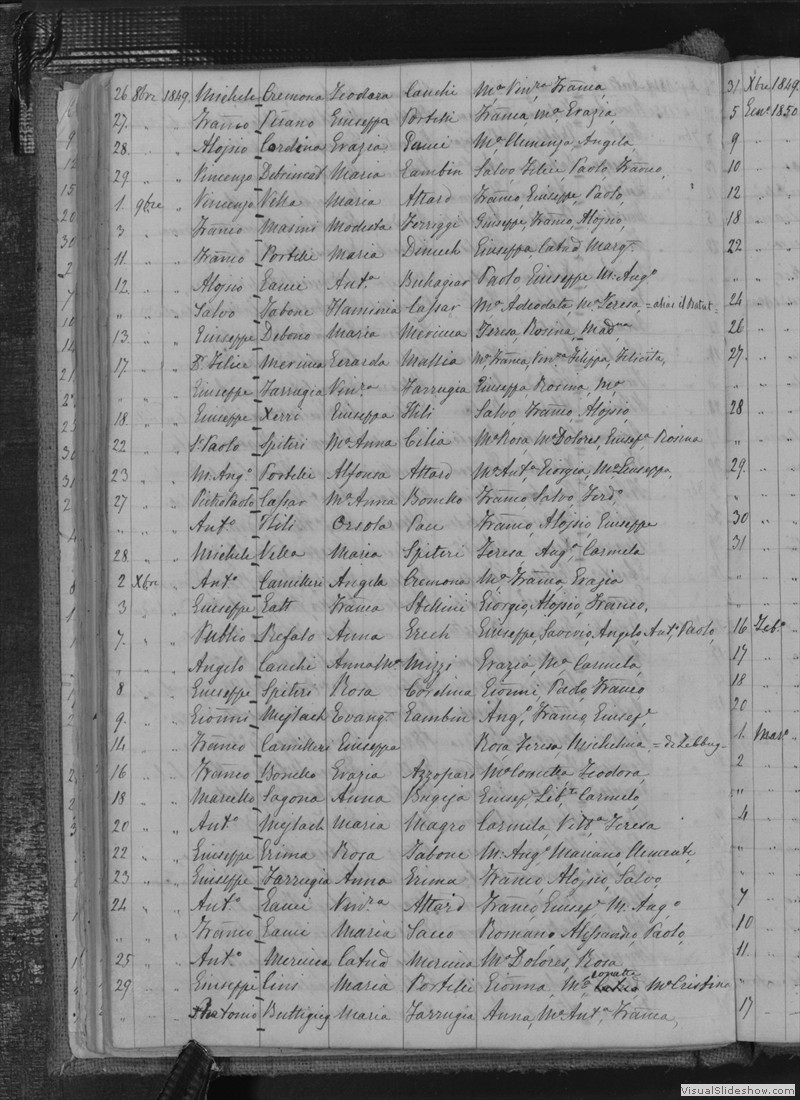 26 8bre 1849 Michele Cremona Teodora Cauchi Ma Vinza Franca 31 Xbre 1849
27 " " Franco Pisano Giuseppa Portelli Franca, Ma, Grazia 5 Geno 1850
28 " " Aloisio Cardina Grazia Ma Clemenza, Angela, 9 " "
29 " " Vincenzo Maria Gambin Salvo, Felice, Paolo, Franco, 10 " "
1 9bre " Vincenzo Vella Maria Attard Franco, Giuseppe, Paolo, 12 " "
3 " " Franco Masini Modesta Giuseppe, Franco, Aloisio, 18 " "
11 " " Franco Portelli Maria Dimech Giuseppa, Catna Marga 22 " "
12 " " Aloisio Gauci Anta Buhagiar Paolo Giuseppe M. Ango " " "
" " " Salvo Tabone Flaminia Cassar Ma Adeodata, Ma Teresa, = alias il 24 " "
13 " " Giuseppe Debono Maria Mercieca Teresa, Rosina, 26 " "
17 " " Dr Felice Mercieca Gerarda Ma, Franca, Vinza Filippa, Felicita, 27 " "
" " " Giuseppe Farrugia Vinza Farrugia Giuseppa, Rosina, Ma " " "
18 " " Giuseppe Xerri Giuseppa Hili Salvo Franco, Aloisio, 28 " "
22 " " Paolo Spiteri Ma Anna Cilia Ma Rosa, Ma Dolores, Giusepa Rosina " " "
23 " " M. Ango Portelli Alfonsa Attard Ma Anta, Giorgia, Ma Giuseppa, 29 " "
27 " " Pietro Paolo Cassar Ma Anna Bonello Franco, Salvo, Ferdo " " "
" " " Anto Hili Orsola Pace Franco, Aloisio Giuseppe 30 " "
28 " " Michele Vella Maria Spiteri Teresa, Anga, Carmela 31 " "
2 Xbre " Anto Camilleri Angela Cremona Ma, Franca, Grazia " " "
3 " " Giuseppe Gatt Franca Stellini Giorgio, Aloisio, Franco,
7 " " Publio Refalo Anna Grech Giuseppe, Saverio, Angelo, Anto, Paolo, 16 Febo
" " " Angelo Cauchi Anna Ma Mizzi Grazia, Ma, Carmela, 17 " "
8 " " Giuseppe Spiteri Rosa Cordina Gionni, Paolo, Franco 18 " "
9 " " Gionni Mejlach Evanga Gambin Ango, Franco, Giusepe, 20 " "
14 " " Franco Camilleri Giuseppa Rosa, Teresa, Michelina, = di Zebbug 1 Maro "
16 " " Franco Bonello Grazia Azzopard Ma Concetta Teodora, 2 " "
18 " " Marcello Sagona Anna Bugeja Giusepe, Carmelo, " " "
20 " " Anto Mejlach Maria Magro Carmela, Vitta, Teresa 4 " "
22 " " Giuseppe Grima Rosa Tabone M. Ango Mariano Clemente, " " "
23 " " Giuseppe Farrugia Anna Grima Franco, Aloisio, Salvo, " " "
24 " " Anto Gauci Vinza Attard Franco, Giusepe, M. Ango 7 " "
" " " Franco Gauci Maria Sacco Romano, Alessandro, Paolo, 10 " "
25 " " Anto Mercieca Catna Mercieca Ma Dolores, Rosa 11 " "
29 " " Giuseppe Cini Maria Portelli Gionna, Ma Ma Cristina " " "
" " " Antonio Buttigieg Maria Farrugia Anna, Ma Anta, Franca, 17 " "
VisualSlideshow.com